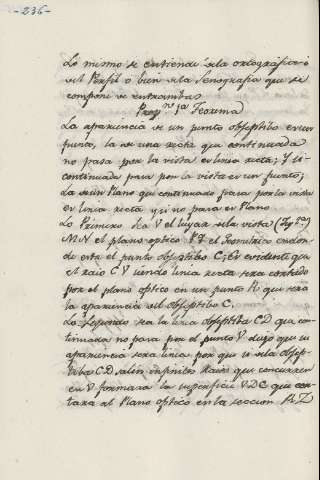 -236-
Lo mismo se entiende dela ortográfica o
del Perfil o bien dela Senografia que se
compone de entrambas
Prop.n 1a Teorema
La apariencia de un punto objeptibo es un
punto, la de una recta que continuada
no pasa por la vista es linia recta; y si
continuada pasa por la vista es un punto;
La de un Plano que continuado pasa por la vista
es linia recta y si no pasa es Plano.
Lo Primero sea V el lugar dela vista (Fig.
MN el plano optico el Geometrico en don-
de esta el punto objeptibo C, es evidente que
el raio CV siendo linia recta sera cortado
por el plano optico en un punto R que sera
la apariencia del objeptibo C.
Lo segundo sea la linia objeptiba CD que con-
tinuada no pasa por el punto V digo que su
apariencia sera linia por que si dela objep-
tiba CD salen infinitos Raios que concurren
en V formara la superficie VDC que cor-
tara al Plano optico en la seccion RZ